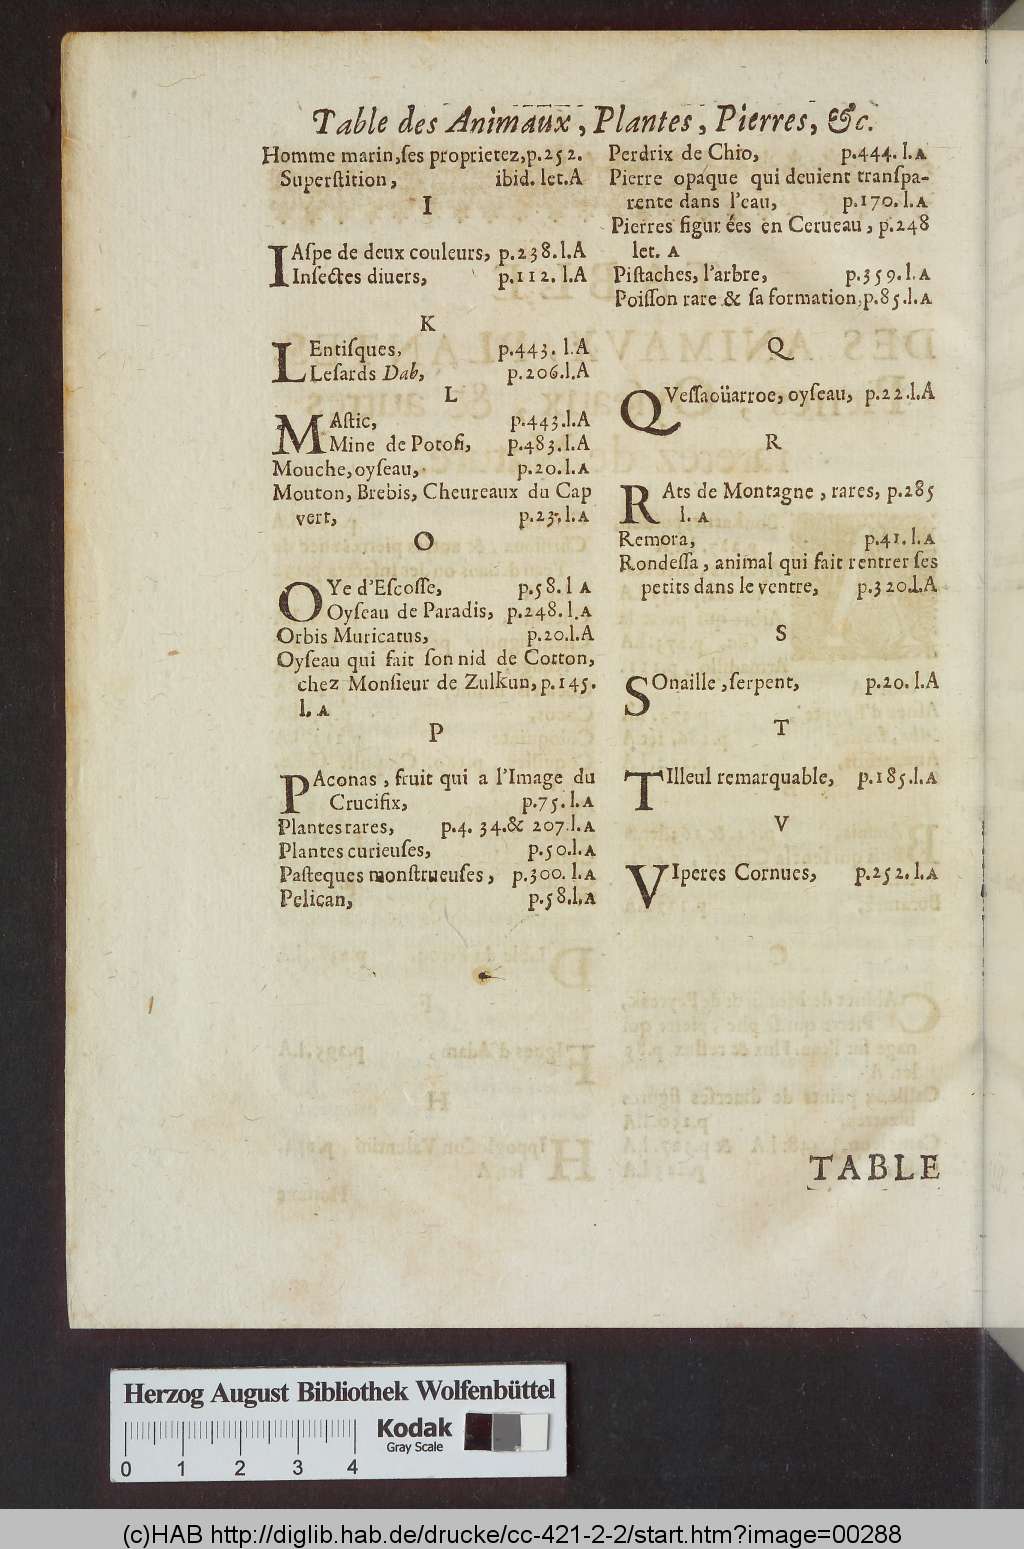 Table des Animaux, Plantes, Pierres, &c.
Homme marin, ſes proprietez, p.252.
Superſtition, ibid. let.A
I
IAſpe de deux couleurs, p.238.l.A
Inſectes diuers, p.112. l.A
K
LEntiſques, p.443. l.A
Leſards Dab, p.206.l.A
L
MAſtic, p.443.l.A
Mine de Potoſi, p.483.l.A
Mouche, oyſeau, p.20.l.A
Mouton, Brebis, Cheureaux du Cap
vert, p.23.l.A
O
OYe d'Eſcoſſe, p.58.l A
Oyſeau de Paradis, p.248.l.A
Orbis Muricatus, p.20.l.A
Oyſeau qui fait ſon nid de Cotton,
chez Monſieur de Zulkun, p.145.
l. A
P
PAconas, fruit qui a l'Image du
Crucifix, p.75.l.A
Plantes rares, p.4. 34.& 207.l.A
Plantes curieuſes, p.50.l.A
Paſteques monſtrueuſes, p.300. l.A
Pelican, p.58.l.A
Perdrix de Chio, p.444. l.A
Pierre opaque qui deuient tranſpa-
rente dans l'eau, p.170. l.A
Pierres figurées en Cerueau, p.248
let. A
Piſtaches, l'arbre, p.359.l.A
Poiſſon rare & ſa formation, p.85.l.A
Q
QVeſſaoüarroe, oyſeau, p.22.l.A
R
RAts de Montagne, rares, p.285
l. A
Remora, p.41.l.A
Rondeſſa, animal qui fait rentrer ſes
petits dans le ventre, p.320.l.A
S
SOnaille, ſerpent, p.20. l.A
T
TIlleul remarquable, p.185.l.A
V
VIperes Cornues, p.252. l.A
TABLE
Herzog August Bibliothek Wolfenbüttel
Kodak
Gray Scale
0 1 2 3 4
(c)HAB http://diglib.hab.de/drucke/cc-421-2-2/start.htm?image=00288